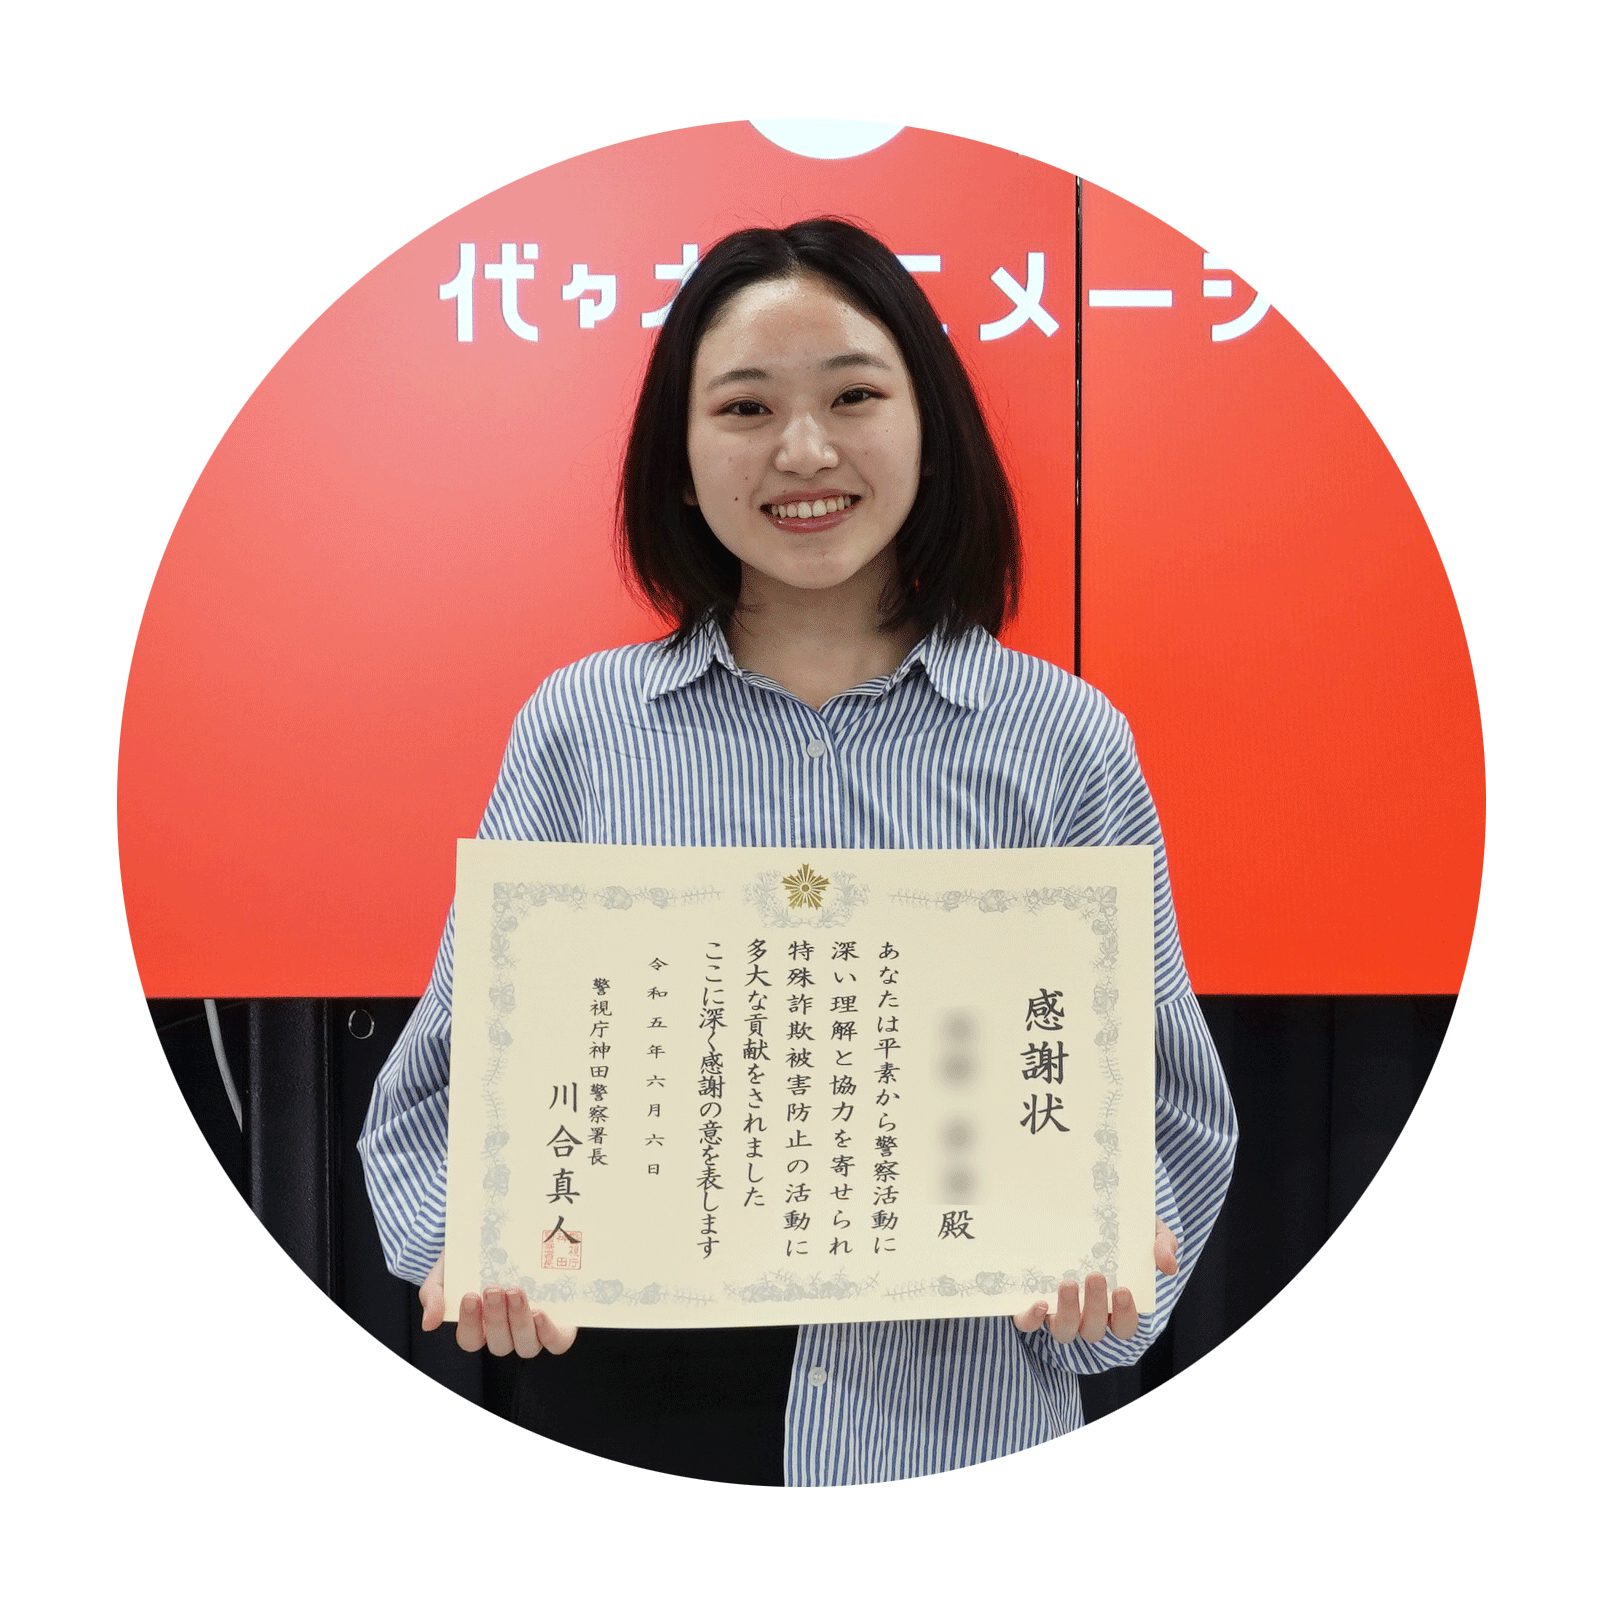 代々 ニメーシ
感謝状
殿
あなたは平素から警察活動に
深い理解と協力を寄せられ
特殊詐欺被害防止の活動に
多大な貢献をされました
ここに深く感謝の意を表します
令和五年六月六日
警視庁神田警察署長
川合真人